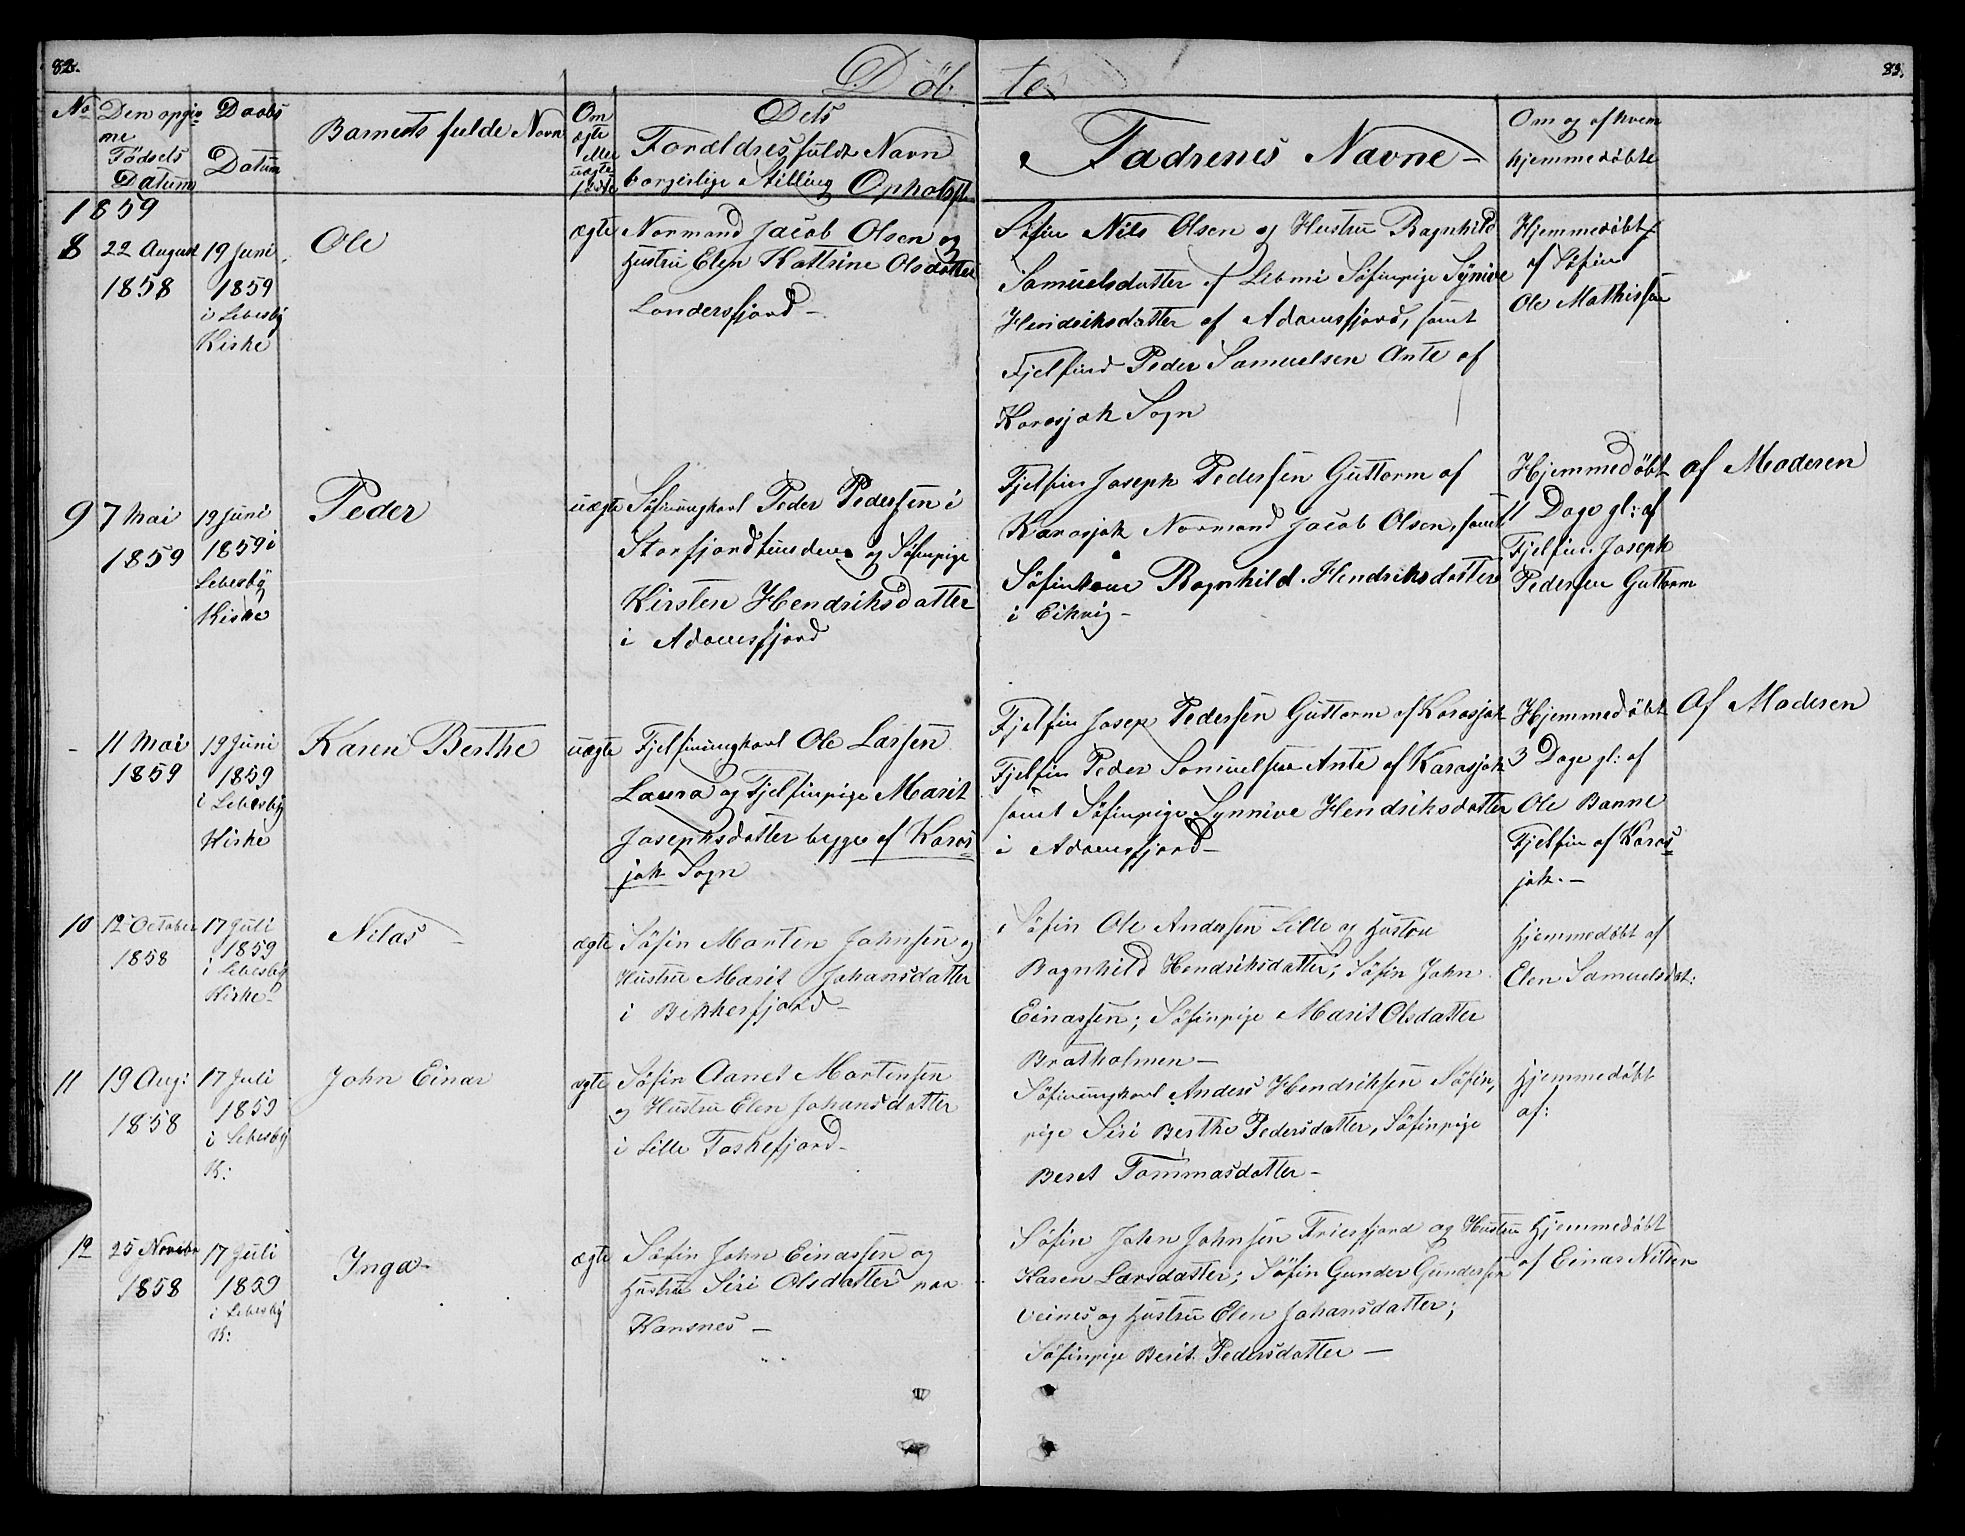 82.
83.
Døb: te
No
Den opgiv
ne
Fødsels
Datum
Daabs
Datum
Barnets fulde Navn
Om
ægte
eller
uægte
født
Dets
Forældres fulde Navn
borgerlige Stilling Opholdst
Fadrenes Navne
Om og af hvem
hjemmedøbte
1859
8
22 August
1858
19 Juni
1859
i Lebesby
Kirke
Ole
ægte
Normand Jacob Olsen og
Hustru Elen Kattrine Olsdatter
Landersfjord -
Søfin Nils Olsen og Hustru Ragnhild
Samuelsdatter af Lebmi Søfinpige Synive
Hendriksdatter af Adamsfjord, samt
Fjelfind Peder Samuelsen Ante af
Karasjok Sogn
Hjemmedøbt
af Søfin
Ole Mathissen
9
7 Mai
1859
19 Juni
1859 i
Lebesby
Kirke
Peder
uægte
Søfinungkarl Peder Pedersen i
Storfjordbunden og Søfinpige
Kirsten Hendriksdatter
i Adamsfjord
Fjelfin Joseph Pedersen Guttorm af
Karasjok Normand Jacob Olsen, samt
Søfinkone Ragnhild Hendriksdatter
i Eikvig -
Hjemmedøbt af Moderen
11 Dage gl: af
Fjelfin Joseph
Pedersen Guttorm
-
11 Mai
1859
19 Juni
1859
i Lebesby
Kirke
Karen Berthe
uægte
Fjelfinungkarl Ole Larsen
Laura og Fjelfinpige Marit
Josephsdatter begge af Karas=
jok Sogn
Fjelfin Josep Pedersen Guttorm af Karasjok
Fjelfin Peder Samuelsen Ante af Karasjok
samt Søfinpige Synnive Hendriksdatter
i Adamsfjord -
Hjemmedøbt Af Moderen
3 Dage gl: af
Ole Banne
Fjelfin af Karas=
jok. -
10
12 October
1858
17 Juli
1859
i Lebesby
Kirke -
Nilas
ægte
Søfin Morten Johnsen og
Hustru Marit Johansdatter
i Bekkerfjord -
Søfin Ole Andersen Lille og Hustru
Ragnhild Hendriksdatter; Søfin John
Einassen; Søfinpige Marit Olsdatter
Bratholmen -
hjemmedøbt af
Elen Samuelsdat:
11
19 Aug:
1858
17 Juli
1859
i Lebesby
K:
John Einar
ægte
Søfin Aanet Mortensen
og Hustru Elen Johansdatter
i Lille Taskefjord -
Søfinungkarl Anders Hendriksen Søfin,
pige Siri Berthe Pedersdatter, Søfinpige
Beret Tommasdatter -
hjemmedøbt
af:
12
25 Novebr
1858
17 Juli
1859
i Lebesby
K:
Inga
ægte
Søfin John Einassen og
Hustru Siri Olsdatter paa
Kansnes -
Søfin John Johnsen Friesfjord og Hustru
Karen Larsdatter; Søfin Gunder Gundersen
Veines og Hustru Elen Johansdatter;
Søfinpige Berit Pedersdatter -
hjemmedøbt
af Einar Nilsen